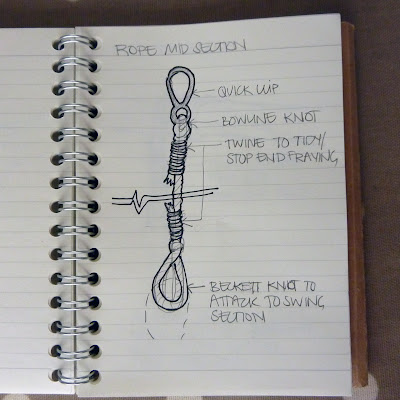 ROPE MID SECTION
QUICK LIP
BOWLINE KNOT
TWINE TO TIDY/
STOP END FRAYING
BECKETT KNOT TO
ATTACK TO SWING
SECTION